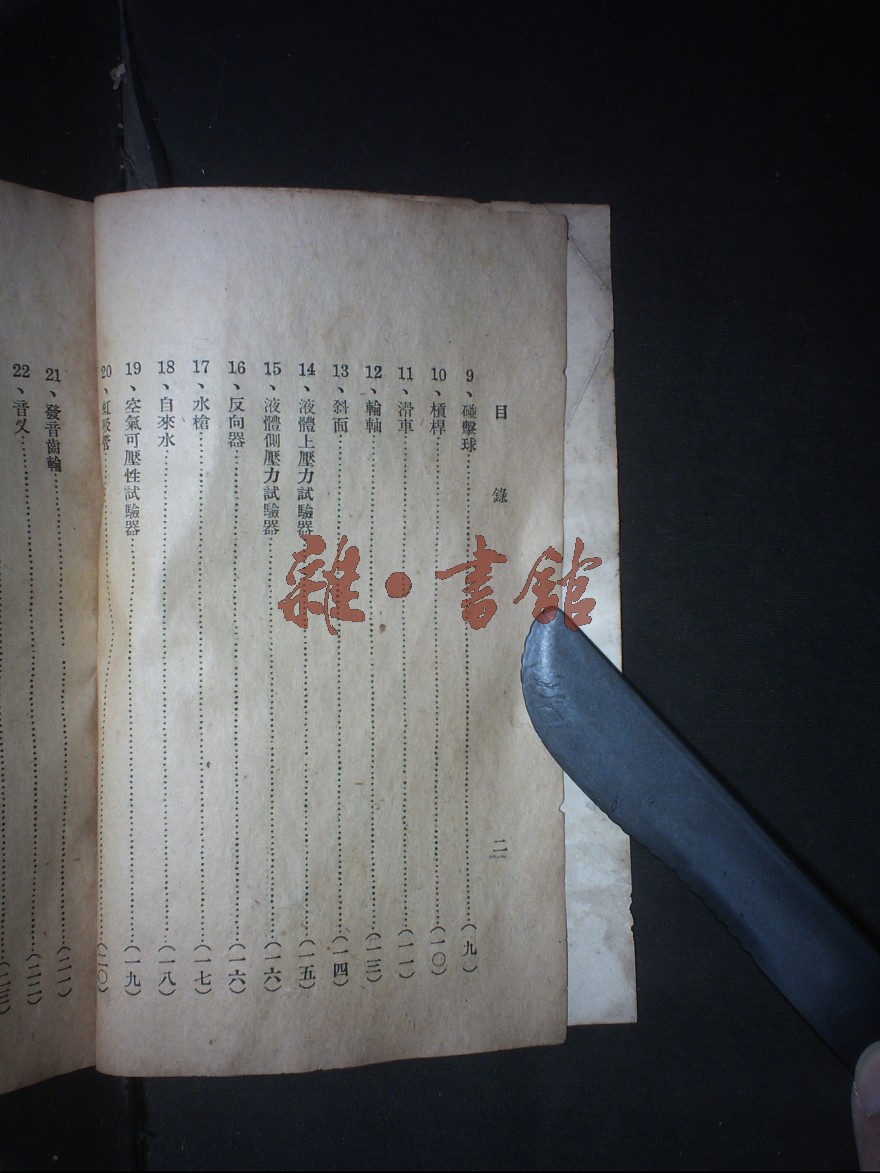 目 錄 二
9、碰擊球……(九)
10、槓桿……(一〇)
11、滑車……(一一)
12、輪軸……(一三)
13、斜面……(一四)
14、液體上壓力試驗器……(一五)
15、液體側壓力試驗器……(一六)
16、反向器……(一六)
17、水槍……(一七)
18、自來水……(一八)
19、空氣可壓性試驗器……(一九)
20、虹吸管……(二〇)
21、發音齒輪……(二一)
22、音叉……(二二)
(二三)
雜·書館